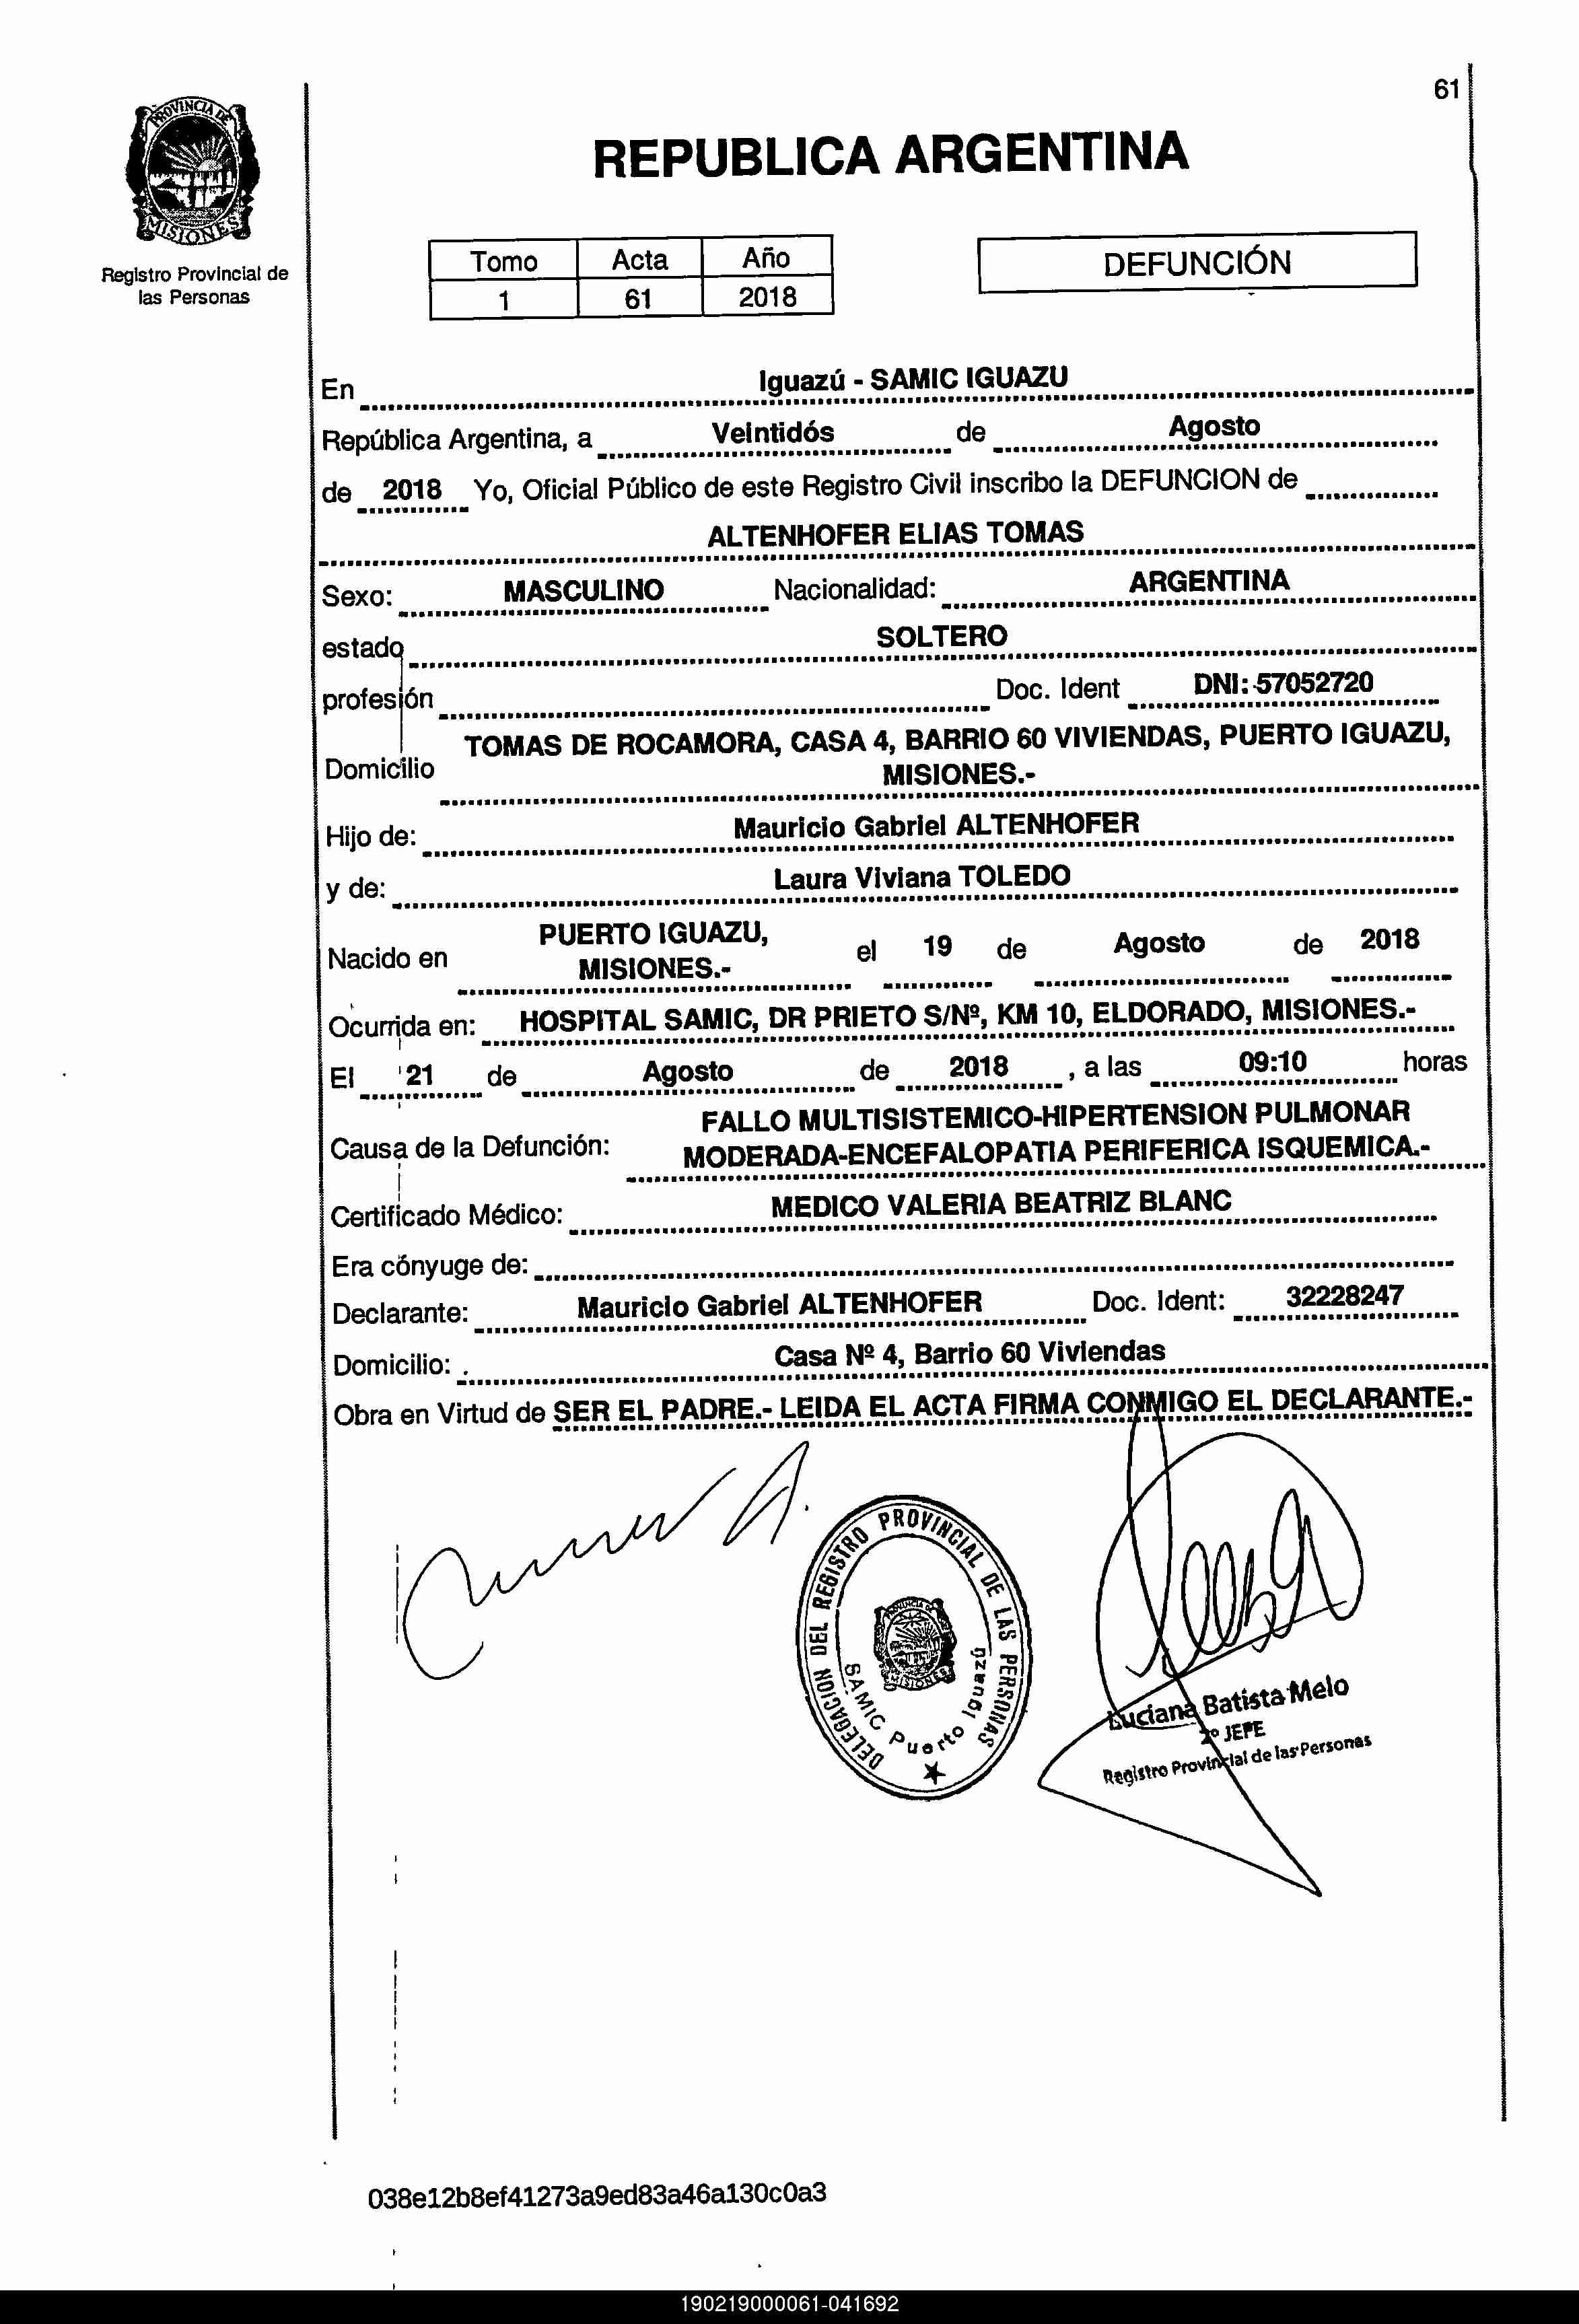 61
PROVINCIA DE
MISIONES
Registro Provincial de
las Personas
REPUBLICA ARGENTINA
Tomo Acta Año
1 61 2018
DEFUNCIÓN
En Iguazú - SAMIC IGUAZU
República Argentina, a Veintidós de Agosto
de 2018 Yo, Oficial Público de este Registro Civil inscribo la DEFUNCION de
ALTENHOFER ELIAS TOMAS
Sexo: MASCULINO Nacionalidad: ARGENTINA
estado SOLTERO
profesión Doc. Ident DNI: 57052720
Domicilio TOMAS DE ROCAMORA, CASA 4, BARRIO 60 VIVIENDAS, PUERTO IGUAZU,
MISIONES.-
Hijo de: Mauricio Gabriel ALTENHOFER
y de: Laura Viviana TOLEDO
Nacido en PUERTO IGUAZU,
MISIONES.- el 19 de Agosto de 2018
Ocurrida en: HOSPITAL SAMIC, DR PRIETO S/Nº, KM 10, ELDORADO, MISIONES.-
El 21 de Agosto de 2018 , a las 09:10 horas
Causa de la Defunción: FALLO MULTISISTEMICO-HIPERTENSION PULMONAR
MODERADA-ENCEFALOPATIA PERIFERICA ISQUEMICA.-
Certificado Médico: MEDICO VALERIA BEATRIZ BLANC
Era cónyuge de:
Declarante: Mauricio Gabriel ALTENHOFER Doc. Ident: 32228247
Domicilio: . Casa Nº 4, Barrio 60 Viviendas
Obra en Virtud de SER EL PADRE.- LEIDA EL ACTA FIRMA CONMIGO EL DECLARANTE.-
DELEGACION DEL REGISTRO PROVINCIAL DE LAS PERSONAS
PROVINCIA DE
MISIONES
SAMIC Puerto Iguazú
Luciana Batista Melo
2º JEFE
Registro Provincial de las Personas
038e12b8ef41273a9ed83a46a130c0a3
190219000061-041692